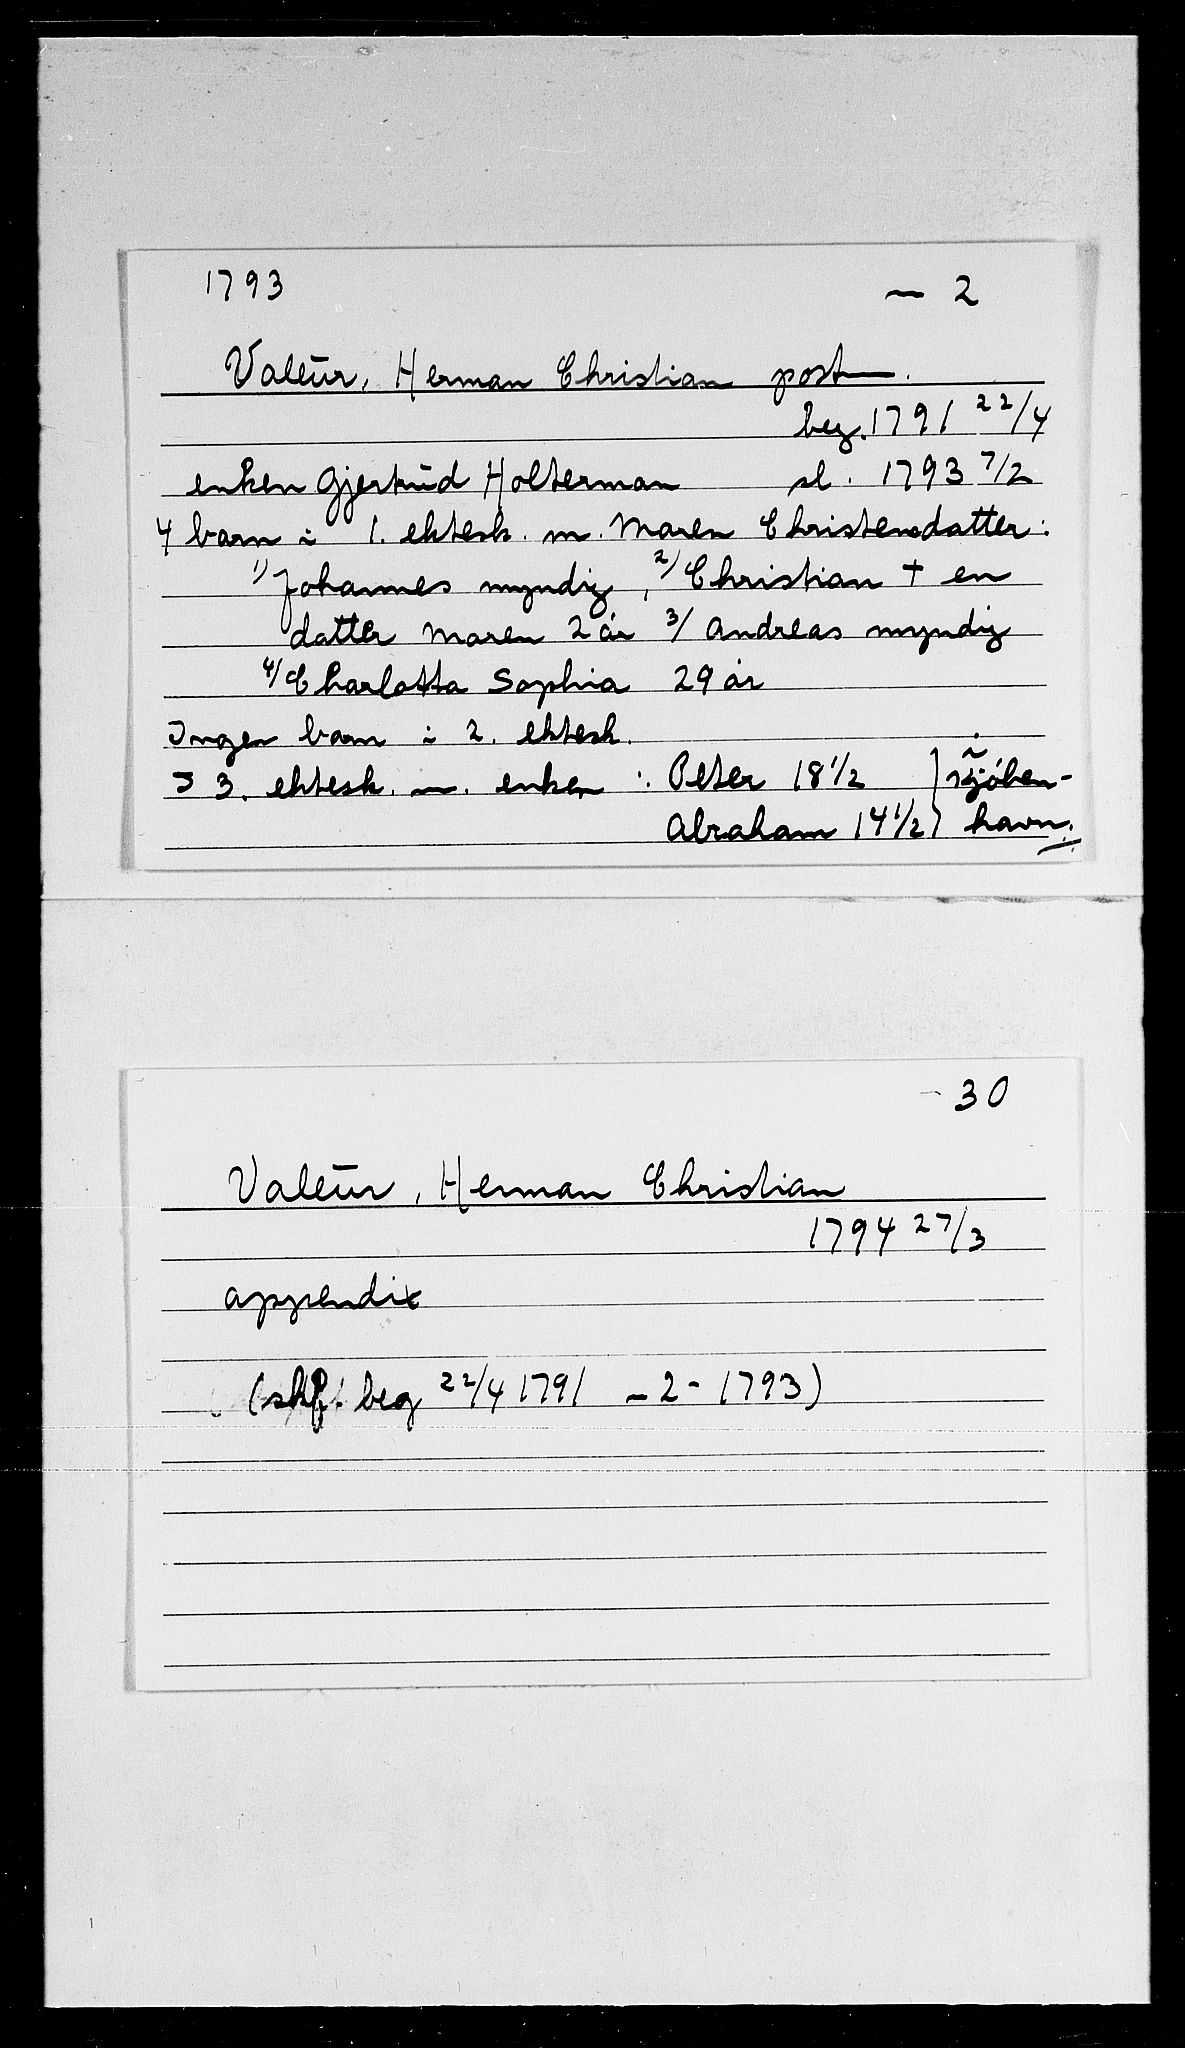 1793 — 2
Valeür, Herman Christian post
beg. 1791 22/4
enken Gjertrüd Holterman sl. 1793 7/2
4 barn i 1. ektesk. m. Maren Christensdatter:
1/ Johannes myndig, 2/ Christian † en
datter Maren 2 år 3/ Andreas myndig
4/ Charlotta Sophia 29 år
Ingen barn i 2. ektesk.
I 3. ektesk. m. enken: Peter 18 1/2 } i Kjöben-
Abraham 14 1/2 } havn.
- 30
Valeür, Herman Christian
1794 27/3
appendix
(skf. beg 22/4 1791 - 2 - 1793)